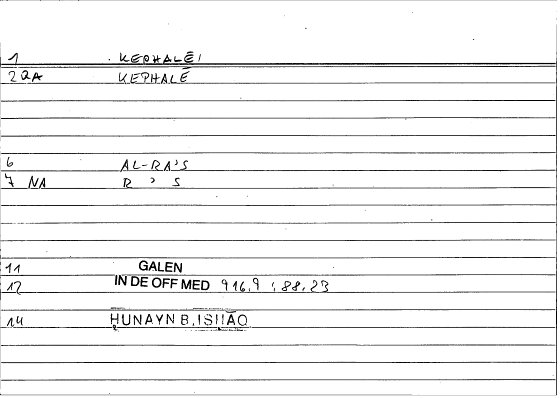 1 KEPHALĒ1
2 QA KEPHALĒ
6 AL-RA'S
7 NA R ' S
11 GALEN
12 IN DE OFF MED 916,9 : 88,23
14 ḤUNAYN B. ISḤĀQ